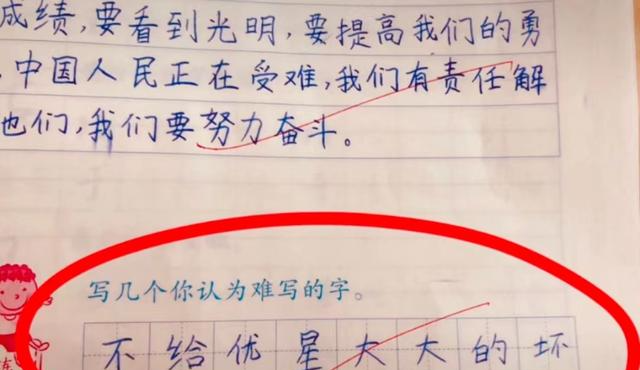 成绩,要看到光明,要提高我们的勇
中国人民正在受难,我们有责任解
也们,我们要努力奋斗。
写几个你认为难写的字。
不给优星大大的坏